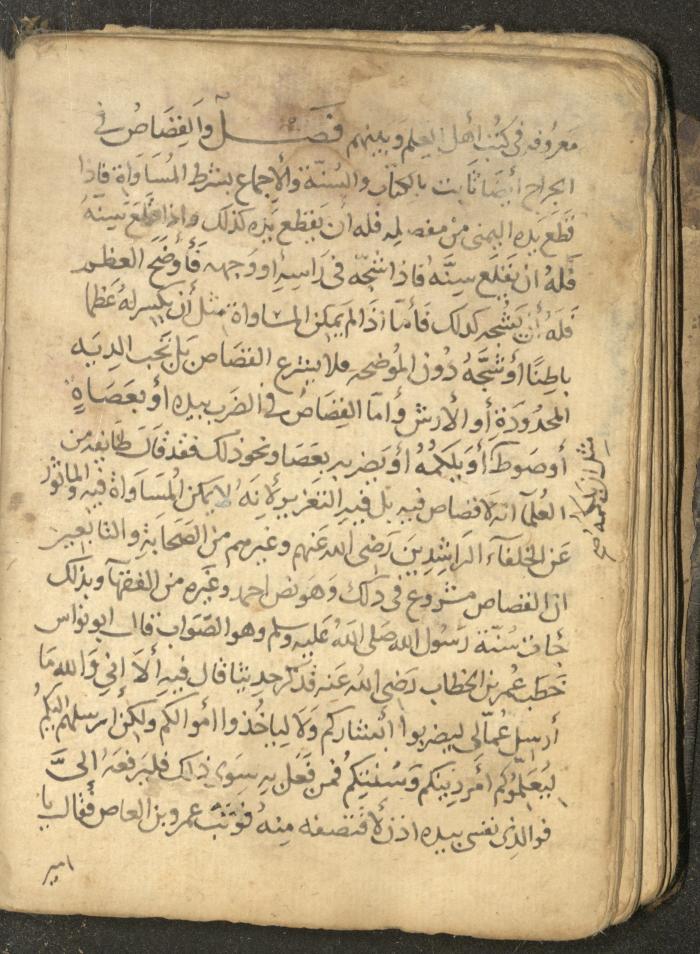 معروفة في كتب أهل العلم وبينهم فصل والقصاص في
الجراح أيضا ثابت بالكتاب والسنة والاجماع بشرط المساواة فاذا
قطع يده اليمنى من مفصله فله أن يقطع يده كذلك واذا قلع سنه
فله ان يقلع سنه فاذا شجه في راسه او وجهه فأوضح العظم
فله أن يشجه كذلك فأما اذا لم يمكن المساواة مثل أن يكسر له عظما
باطنا أو شجه دون الموضحه فلا يشرع القصاص بل تجب الديه
المحدودة أو الأرش وأما القصاص في الضرب بيده أو بعصاه
أو صوطه أو يلكمه أو يضربه بعصا ونحو ذلك فقد قالت طايفة من
العلمآ انه لا قصاص فيه بل فيه التعزير لأنه لا يمكن المساواة فيه والماثور
عن الخلفآء الراشدين رضي الله عنهم وغيرهم من الصحابة والتابعين
ان القصاص مشروع في ذلك وهو نص احمد وغيره من الفقهآ وبذلك
جات سنة رسول الله صلى الله عليه وسلم وهو الصواب قال ابو نواس
خطب عمر بن الخطاب رضي الله عنه فذكر حديثا قال فيه ألا اني والله ما
أرسل عمالي ليضربوا أبشاركم ولا لياخذوا اموالكم ولكن أرسلهم اليكم
ليعلموكم أمر دينكم وسنتكم فمن فعل به سوى ذلك فليرفعه الي
فوالذي نفسي بيده اذن لأقتصنه منه فوثب عمرو بن العاص فقال يا
امير
مثل ان يلكمه صح